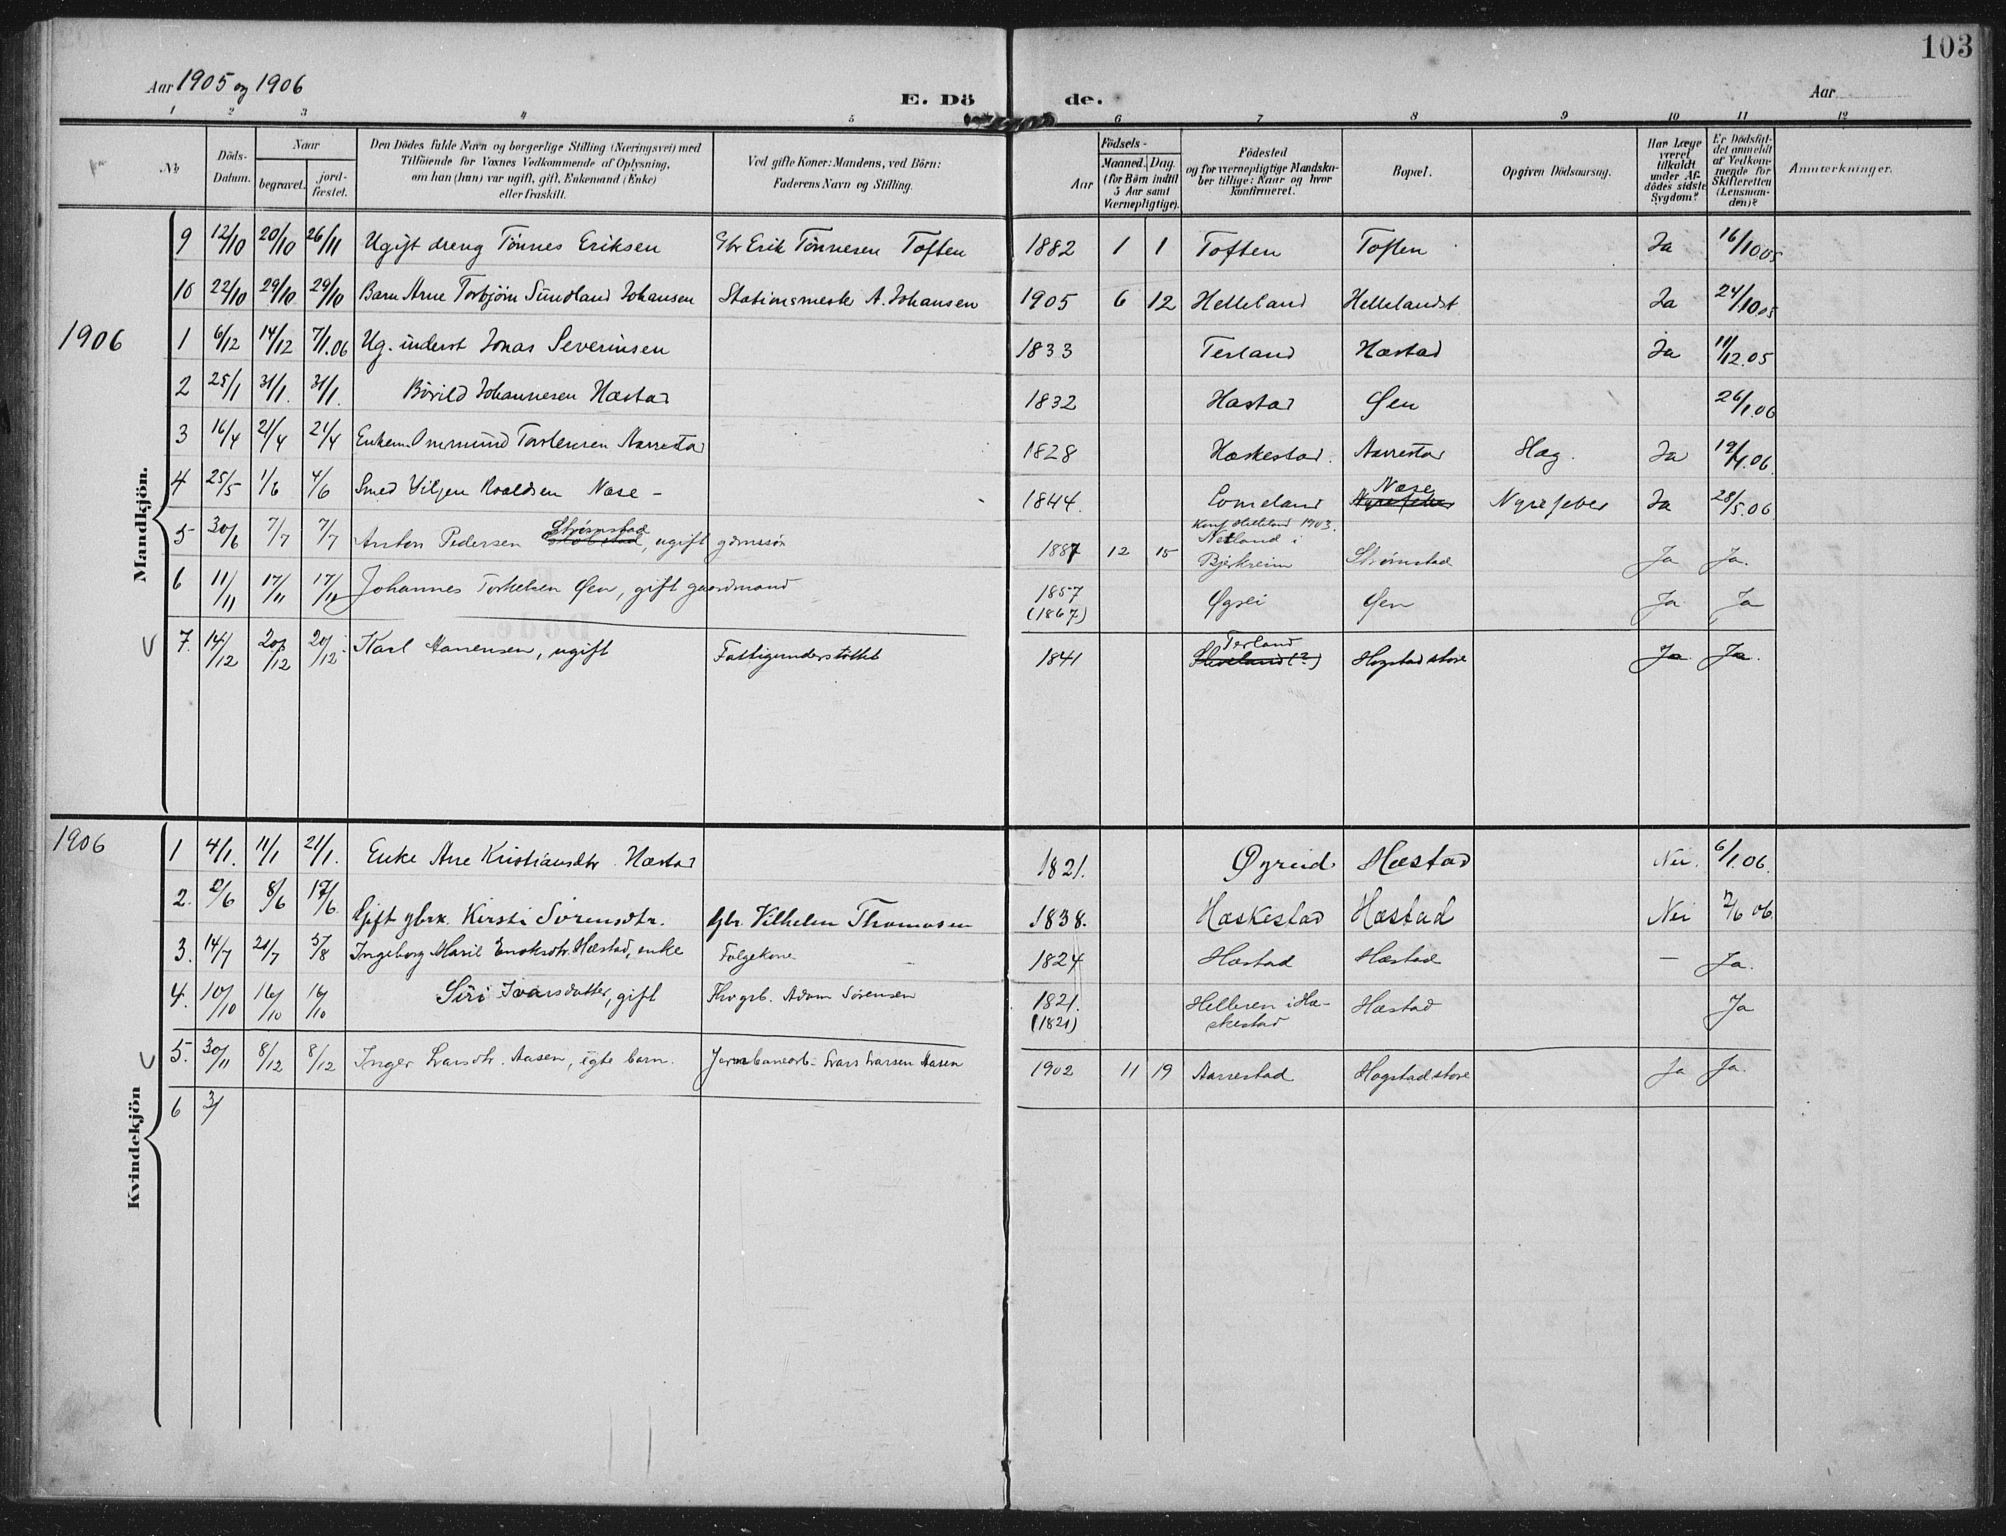 103
Aar 1905 og 1906
E. Dö de.
Aar
1 2 3 4 5 6 7 8 9 10 11 12
No
Döds-Datum.
Naar
begravet.
jord-fæstet.
Den Dödes fulde Navn og borgerlige Stilling (Næringsvei) med
Tilföiende for Voxnes Vedkommende af Oplysning,
om han (hun) var ugift, gift, Enkemand (Enke)
eller fraskilt.
Ved gifte Koner: Mandens, ved Börn:
Faderens Navn og Stilling.
Födsels-
Aar
Maaned. Dag.
(for Börn indtil
5 Aar samt
Værnepligtige).
Födested
og for værnepligtige Mandska-
ber tillige: Naar og hvor
konfirmeret.
Bopæl.
Opgiven Dödsaarsag.
Har Læge
været
tilkaldt
under Af-
dödes sidste
Sygdom?
Er Dödsfal-
det anmeldt
af Vedkom-
mende for
Skifteretten
(Lensman-
den)?
Anmærkninger.
Mandkjön.
9 12/10 20/10 26/11 Ugift dreng Tönnes Eriksen Gbr Erik Tönnesen Toften 1882 1 1 Toften Toften Ja 16/10.05
10 22/10 29/10 29/10 Barn Arne Torbjörn Sundland Johansen Stationsmester A. Johansen 1905 6 12 Helleland Hellelandst Ja 24/10.05
1906
1 6/12 14/12 7/1.06 Ug. inderst Jonas Severinsen 1833 Terland Hæstad Ja 11/12.05
2 25/1 31/1. 31/1. Börild Johannesen Hæstad 1832 Hæstad Øen 26/1.06
3 16/4 21/4 21/4 Enkem. Ommund Torstensen Aarrestad 1828 Hæskestad. Aarrestad Slag. Ja 19/4.06
4 25/5 1/6 4/6 Smed Viljen Roaldsen Nase - 1844. Lomeland Nase Nyrefeber Nyrefeber Ja 28/5.06
5 30/6 7/7 7/7 Anton Pedersen Strömstad, ugift gaardssön 1887 12 15 Konf Helleland 1903. Netland i Bjerkreim Strömstad Ja Ja.
6 11/11 17/11 17/11 Johannes Torkelsen Øen, gift gaardmand 1857 (1867) Øgrei Øen Ja Ja
7. 14/12 20/12 20/12 Karl Hansensen, ugift Fattigunderstöttet 1841 Terland (?) Hogstad store Ja Ja.
Kvindekjön
1906
1 4/1. 11/1 21/1. Enke Ane Kristiansdtr Hæstad 1821. Øgreid Hæstad Nei. 6/1.06.
2. 2/6 8/6 17/6. Gift gbrk. Kirsti Sörensdtr. Gbr. Vilhelm Thomasen 1838. Hæskestad Hæstad Nei 2/6 06.
3. 14/7 21/7 5/8 Ingeborg Marie Enoksdtr. Hæstad, enke Folgekone 1824 Hæstad Hæstad - Ja.
4. 10/10 16/10 16/10 Siri Ivarsdatter, gift Fhv gsb. Adam Sörensen 1821. (1821) Helleren i Hæ-skestad Hæstad Ja
5. 30/11 8/12 8/12 Inger Larsdtr. Aasen, egte barn. Jernbanearb. Lars Larsen Aasen 1902 11 19 Aarrestad Hogstad store Ja Ja.
6 3/